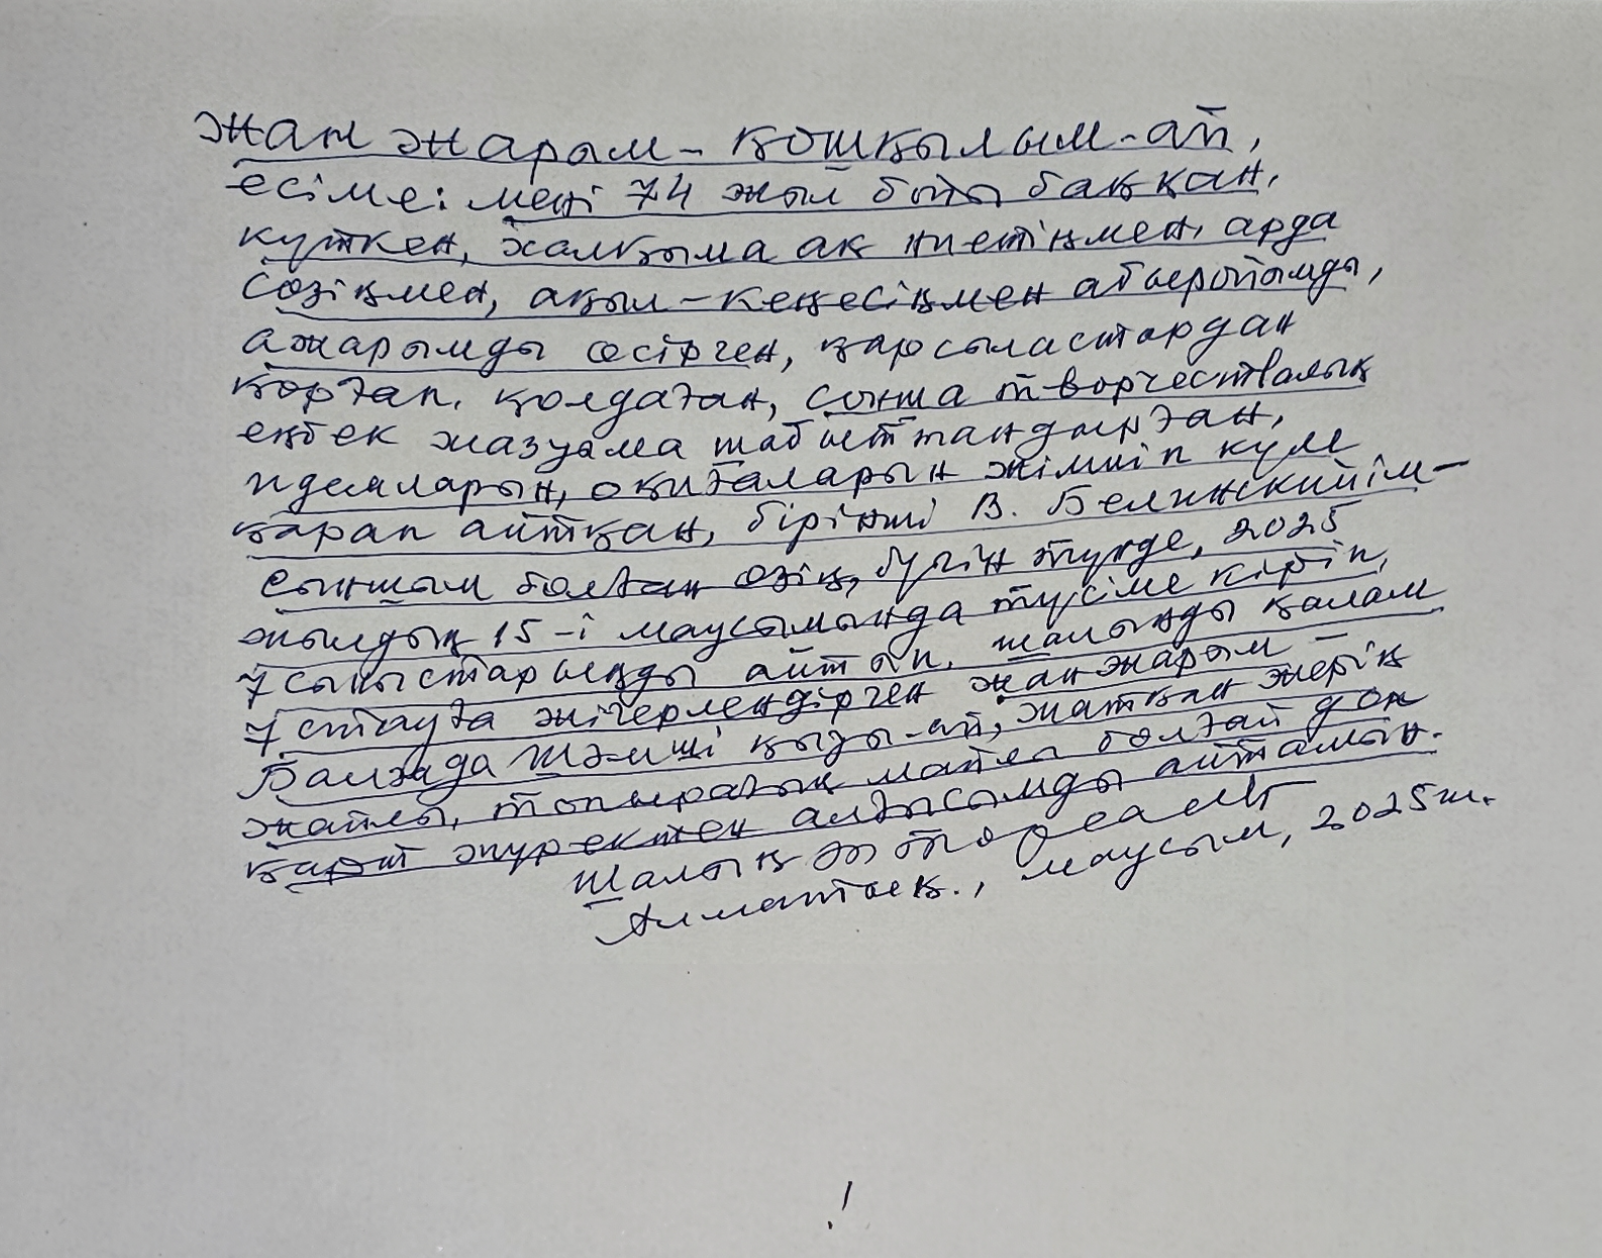 Жан жарым – қошқылым-ай,
есіме: мені 74 жыл бойы баққан,
күткен, халқыма ақ ниетіңмен, арда
сөзіңмен, ақыл-кеңесіңмен абыройымды,
ажарымды өсірген, қарсыластардан
қорғап, қолдаған, сонша творчестволық
еңбек жазуыма шабыттандырған,
идеяларын, оқиғаларын күле
қарап айтқан, бірінші В. Белинскийім –
сыншым болған өзің, бүгін түнде, 2025
жылдың 15-і маусымында түсіме кіріп,
ұсыныстарыңды айтып, шалыңды қалам
ұстауға жігерлендірген жан жарым –
Балғида Шәміші қызы-ай, жатқан жерің
жайлы, топырағың майлы болғай деп
қарт жүректен алғысымды айтамын.
Шалың
Алматы қ., маусым, 2025 ж.
!